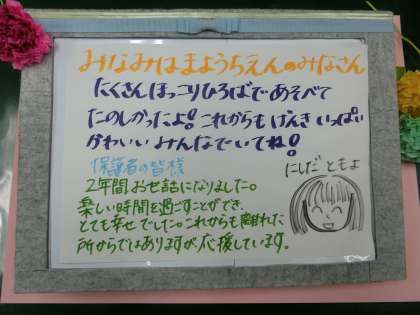 みなみはまようちえんのみなさん
たくさんほっこりひろばであそべて
たのしかったよ!これからもげんきいっぱい
かわいいみんなでいてね!
保護者の皆様
にしだともよ
2年間お世話になりました。
楽しい時間を過ごすことができ、
とても幸せでした。これからも離れた
所からではありますが応援しています。